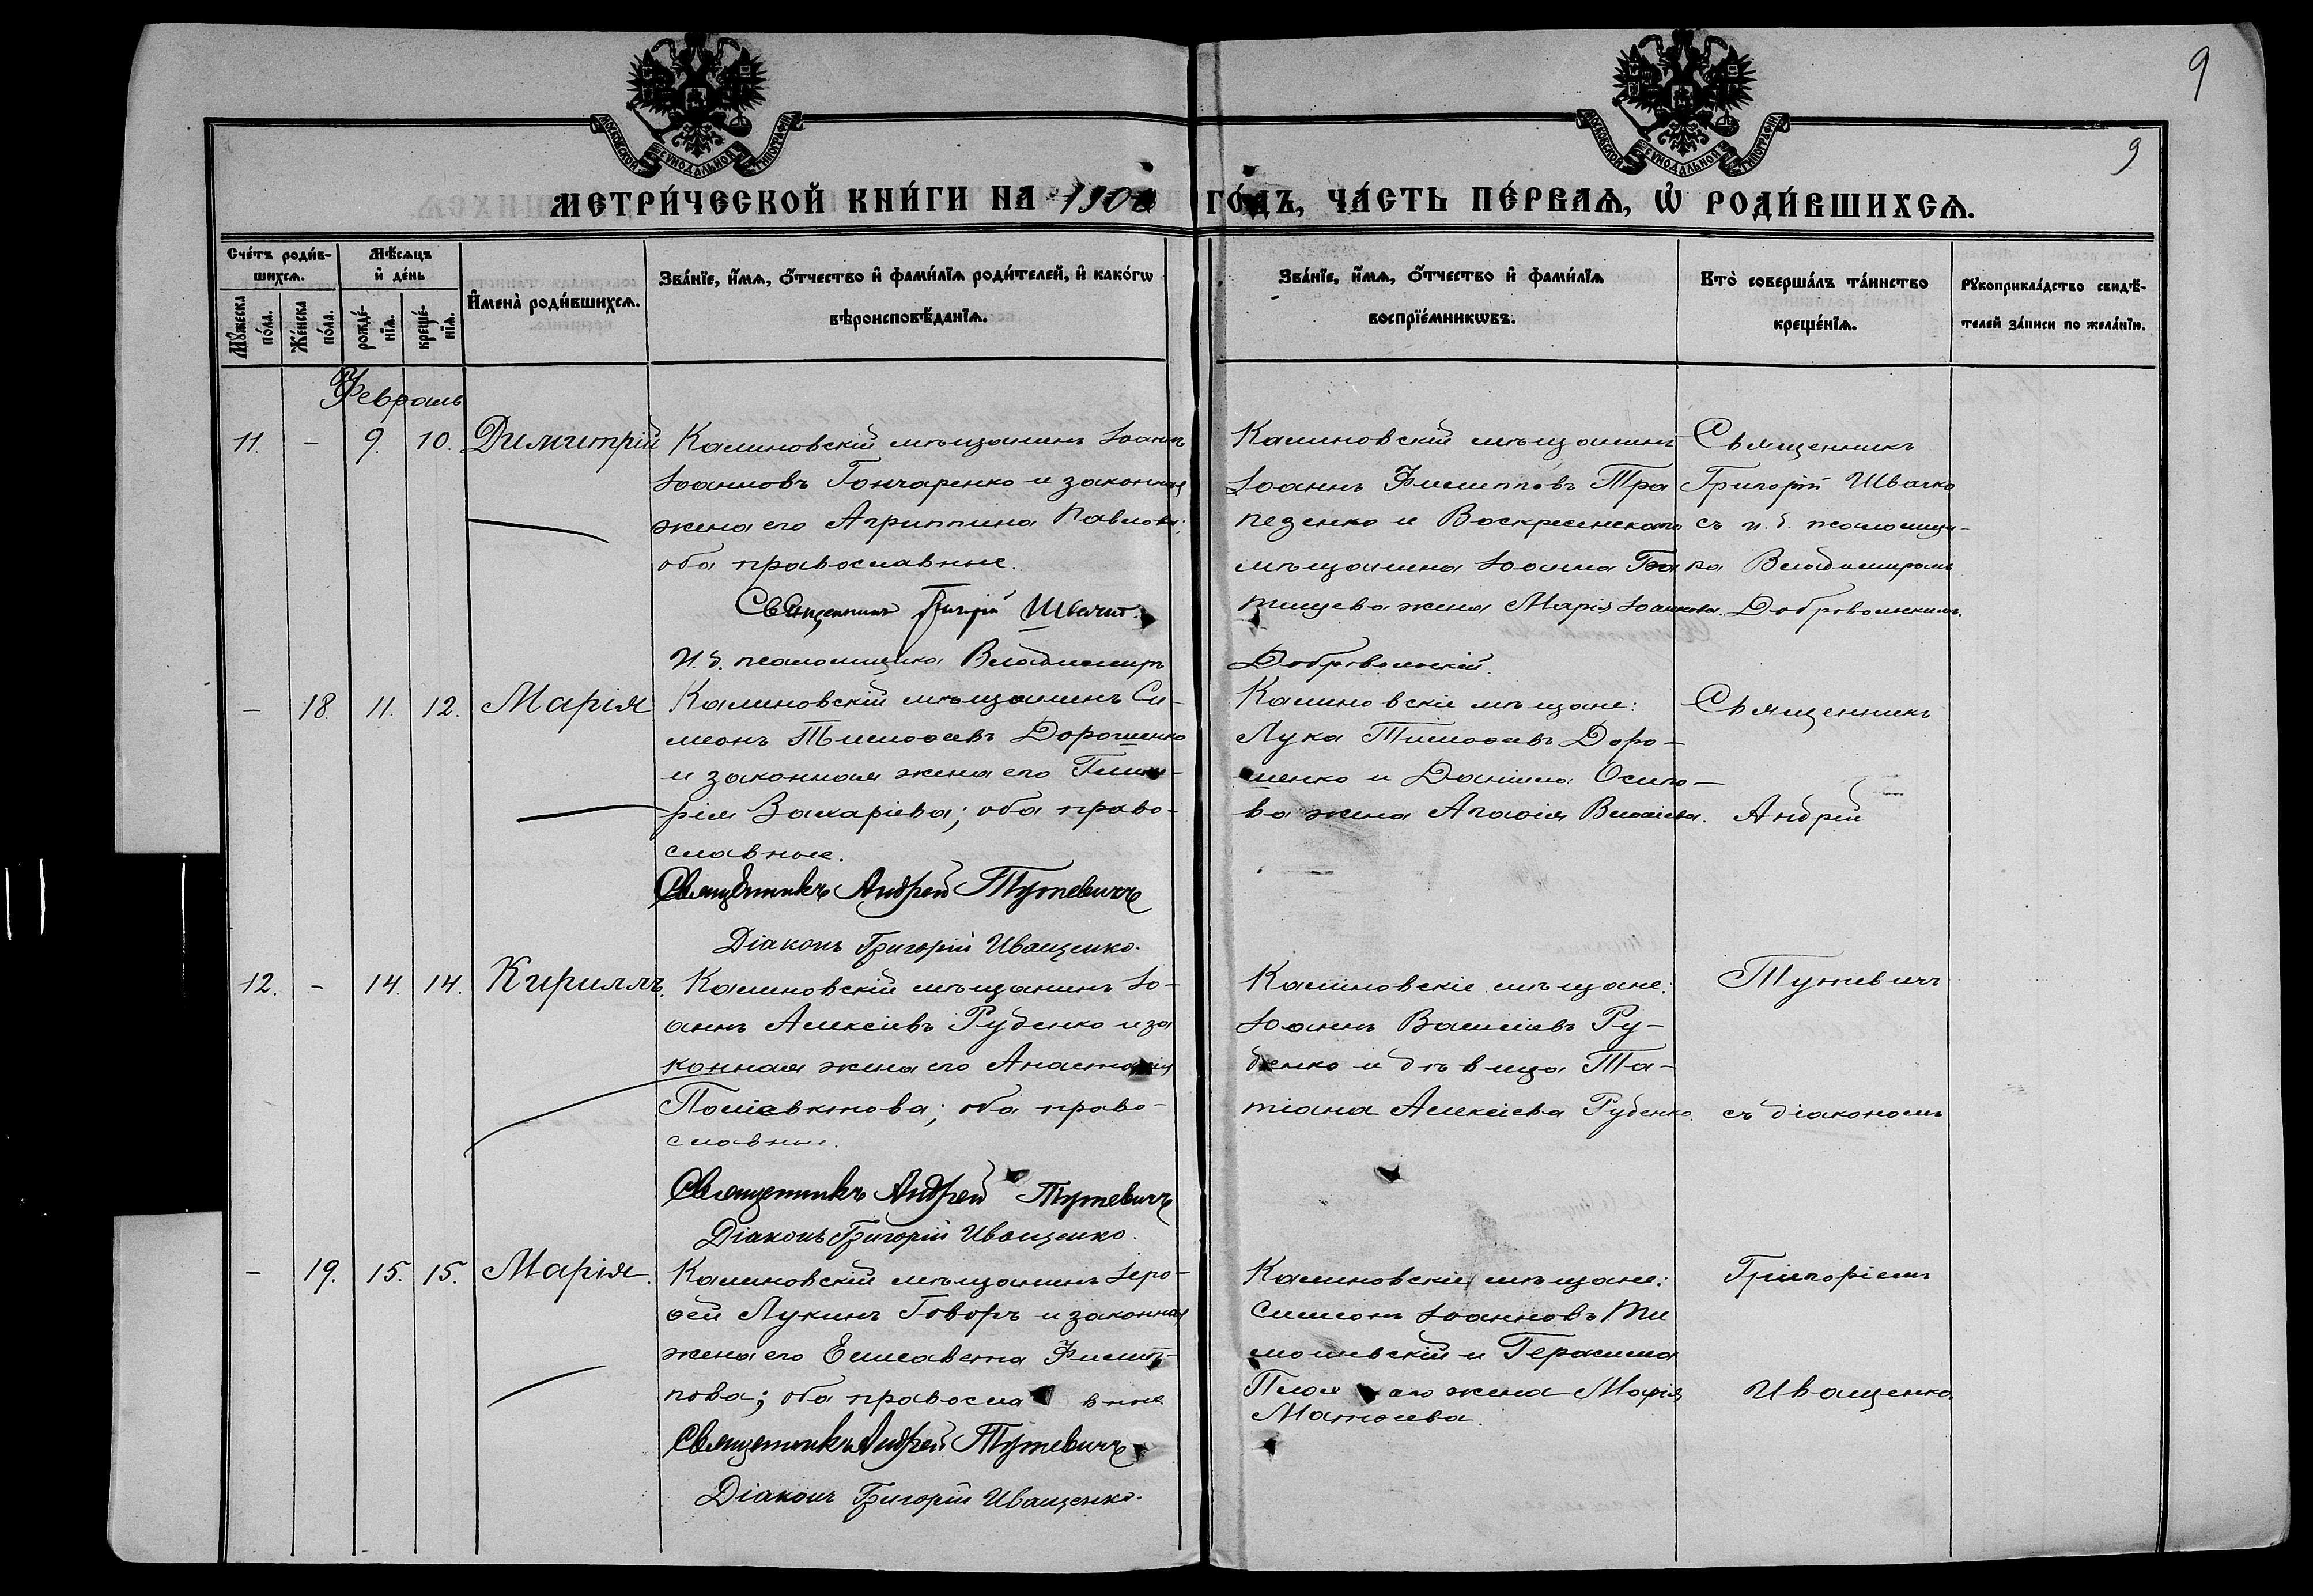 9
9
МОСКОВСКОЙ СУНОДАЛЬНОЙ ТИПОГРАФІИ
МОСКОВСКОЙ СУНОДАЛЬНОЙ ТИПОГРАФІИ
МЕТРИ́ЧЕСКОЙ КНИ́ГИ НА 190 ГО́ДЪ, ЧА́СТЬ ПЕ́РВАѦ, Ѽ РОДИ́ВШИХСѦ.
Сче́тъ роди́в-
шихсѧ.
Мꙋ́жеска по́ла.
Же́нска по́ла.
Мѣ́сѧцъ
и҆ де́нь
рожде́-
нїѧ.
креще́-
нїѧ.
И҆мена̀ роди́вшихсѧ.
Зва́нїе, и҆́мѧ, ѻ҆́тчество и҆ фами́лїѧ роди́телей, и҆ како́гѡ
вѣроисповѣ́данїѧ.
Зва́нїе, и҆́мѧ, ѻ҆́тчество и҆ фами́лїѧ
воспрїе́мникѡвъ.
Кто̀ соверша́лъ та́инство
креще́нїѧ.
Рꙋкоприкла́дство свидѣ́-
телей за́писи по жела́нїю.
Февраль
11. - 9. 10. Димитрій
Калиновскій мѣщанинъ Іоаннъ
Іоанновъ Гончаренко и законная
жена его Агриппина Павлова;
оба православные.
Священникъ Григорій Швачко.
И. д. псаломщика Владимиръ
Добровольскій.
Калиновскій мѣщанинъ
Іоаннъ Филипповъ Тра
пезенко и Воскресенскаго
мѣщанина Іоанна
тищева жена Марія Іоаннова.
Священникъ
Григорій Швачко
съ и. д. псаломщи-
ка Владимиромъ
Добровольскимъ.
- 18. 11. 12. Марія
Калиновскій мѣщанинъ Си-
меонъ Тимоѳеевъ Дорошенко
и законная жена его Глике-
рія Захаріева; оба право-
славные.
Священникъ Андрей Тутевичъ
Діаконъ Григорій Иващенко.
Калиновскіе мѣщане:
Лука Тимоѳеевъ Доро-
шенко и Даніила Осипо-
ва жена Агаѳія Власіева.
Священникъ
Андрей
12. - 14. 14. Кириллъ.
Калиновскій мѣщанинъ Іо-
аннъ Алексіевъ Руденко и за
конная жена его Анастасія
Поліевктова; оба право-
славные.
Священникъ Андрей Тутевичъ
Діаконъ Григорій Иващенко.
Калиновскіе мѣщане:
Іоаннъ Василіевъ Ру-
денко и дѣвица Та-
тіана Алексіева Руденко.
Тутевичъ
съ діакономъ
- 19. 15. 15. Марія.
Калиновскій мѣщанинъ Іеро-
ѳей Лукинъ Говоръ и законная
жена его Елисавета Филип-
пова; оба православные
Священникъ Андрей Тутевичъ
Діаконъ Григорій Иващенко.
Калиновскіе мѣщане:
Симеонъ Іоанновъ
и Герасима
жена Марія
Матѳеева.
Григоріемъ
Иващенко